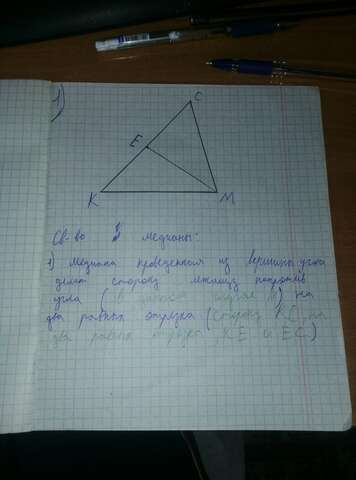 1)
C
E
K
M
Св-во медианы:
1) Медиана проведенная из вершины угла
делит сторону лежащую напротив
угла (в нашем случае M) на
два равных отрезка (сторону KC на
два равных отрезка, KE и EC)